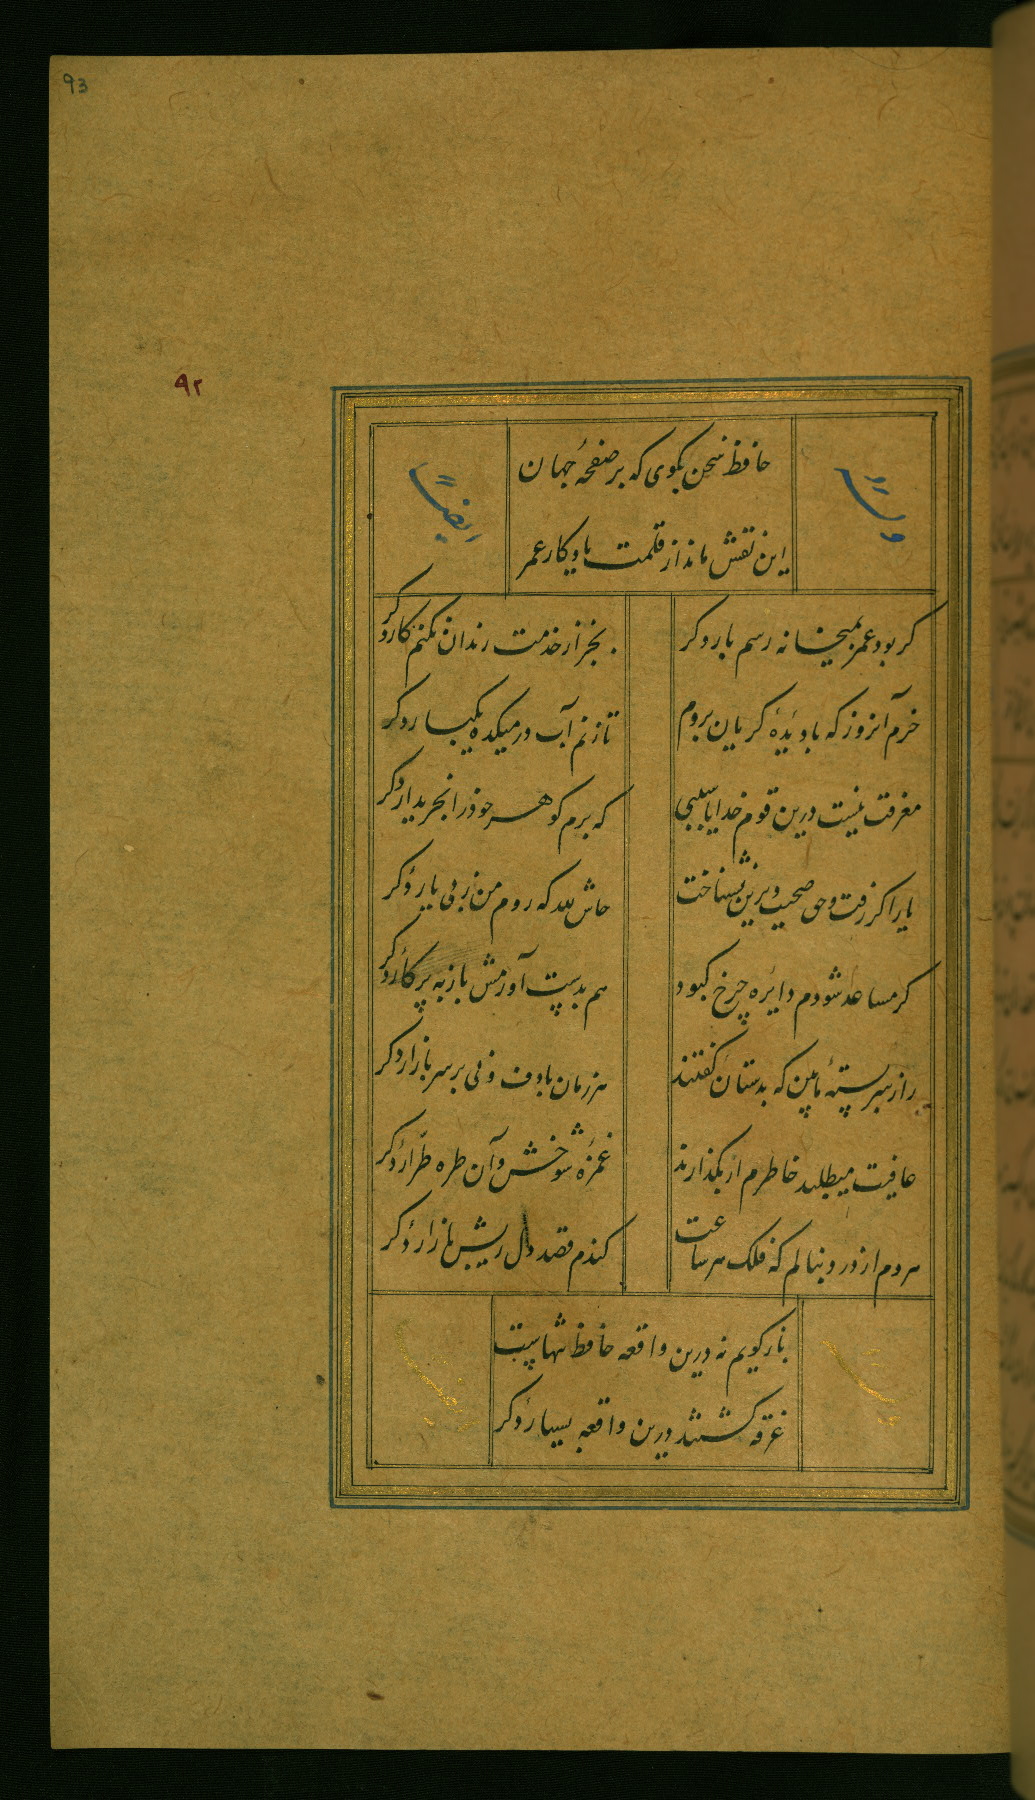 93
۹۲
حافظ سخن بگوی که بر صفحۀ جهان
این نقش ماند از قلمت یادکار عمر
وله
ایضاً
کر بود عمر بمیخانه رسم بار دکر
بجز از خدمت رندان نکنم کار دکر
خرم آنروز که با دیدۀ کریان بروم
تا زنم آب در میکده یکبار دکر
معرفت نیست درین قوم خدایا سببی
که برم کوهر خود را بخریدار دکر
یار اکر رفت و حق صحبت دیرین نشناخت
حاش لله که روم من ز پی یار دکر
کر مساعد شودم دایره چرخ کبود
هم بدست آورمش باز به پرکار دکر
راز سربستۀ ما بین که بدستان کفتند
هر زمان با دف و نی بر سر بازار دکر
عافیت میطلبد خاطرم ار بکذارند
غمزۀ شوخش و آن طره طرّار دکر
هر دم از درد بنالم که فلک هر ساعت
کندم قصد دل ریش بازار دکر
باز کویم نه درین واقعه حافظ تنهاست
غرقه کشتند درین واقعه بسیار دکر